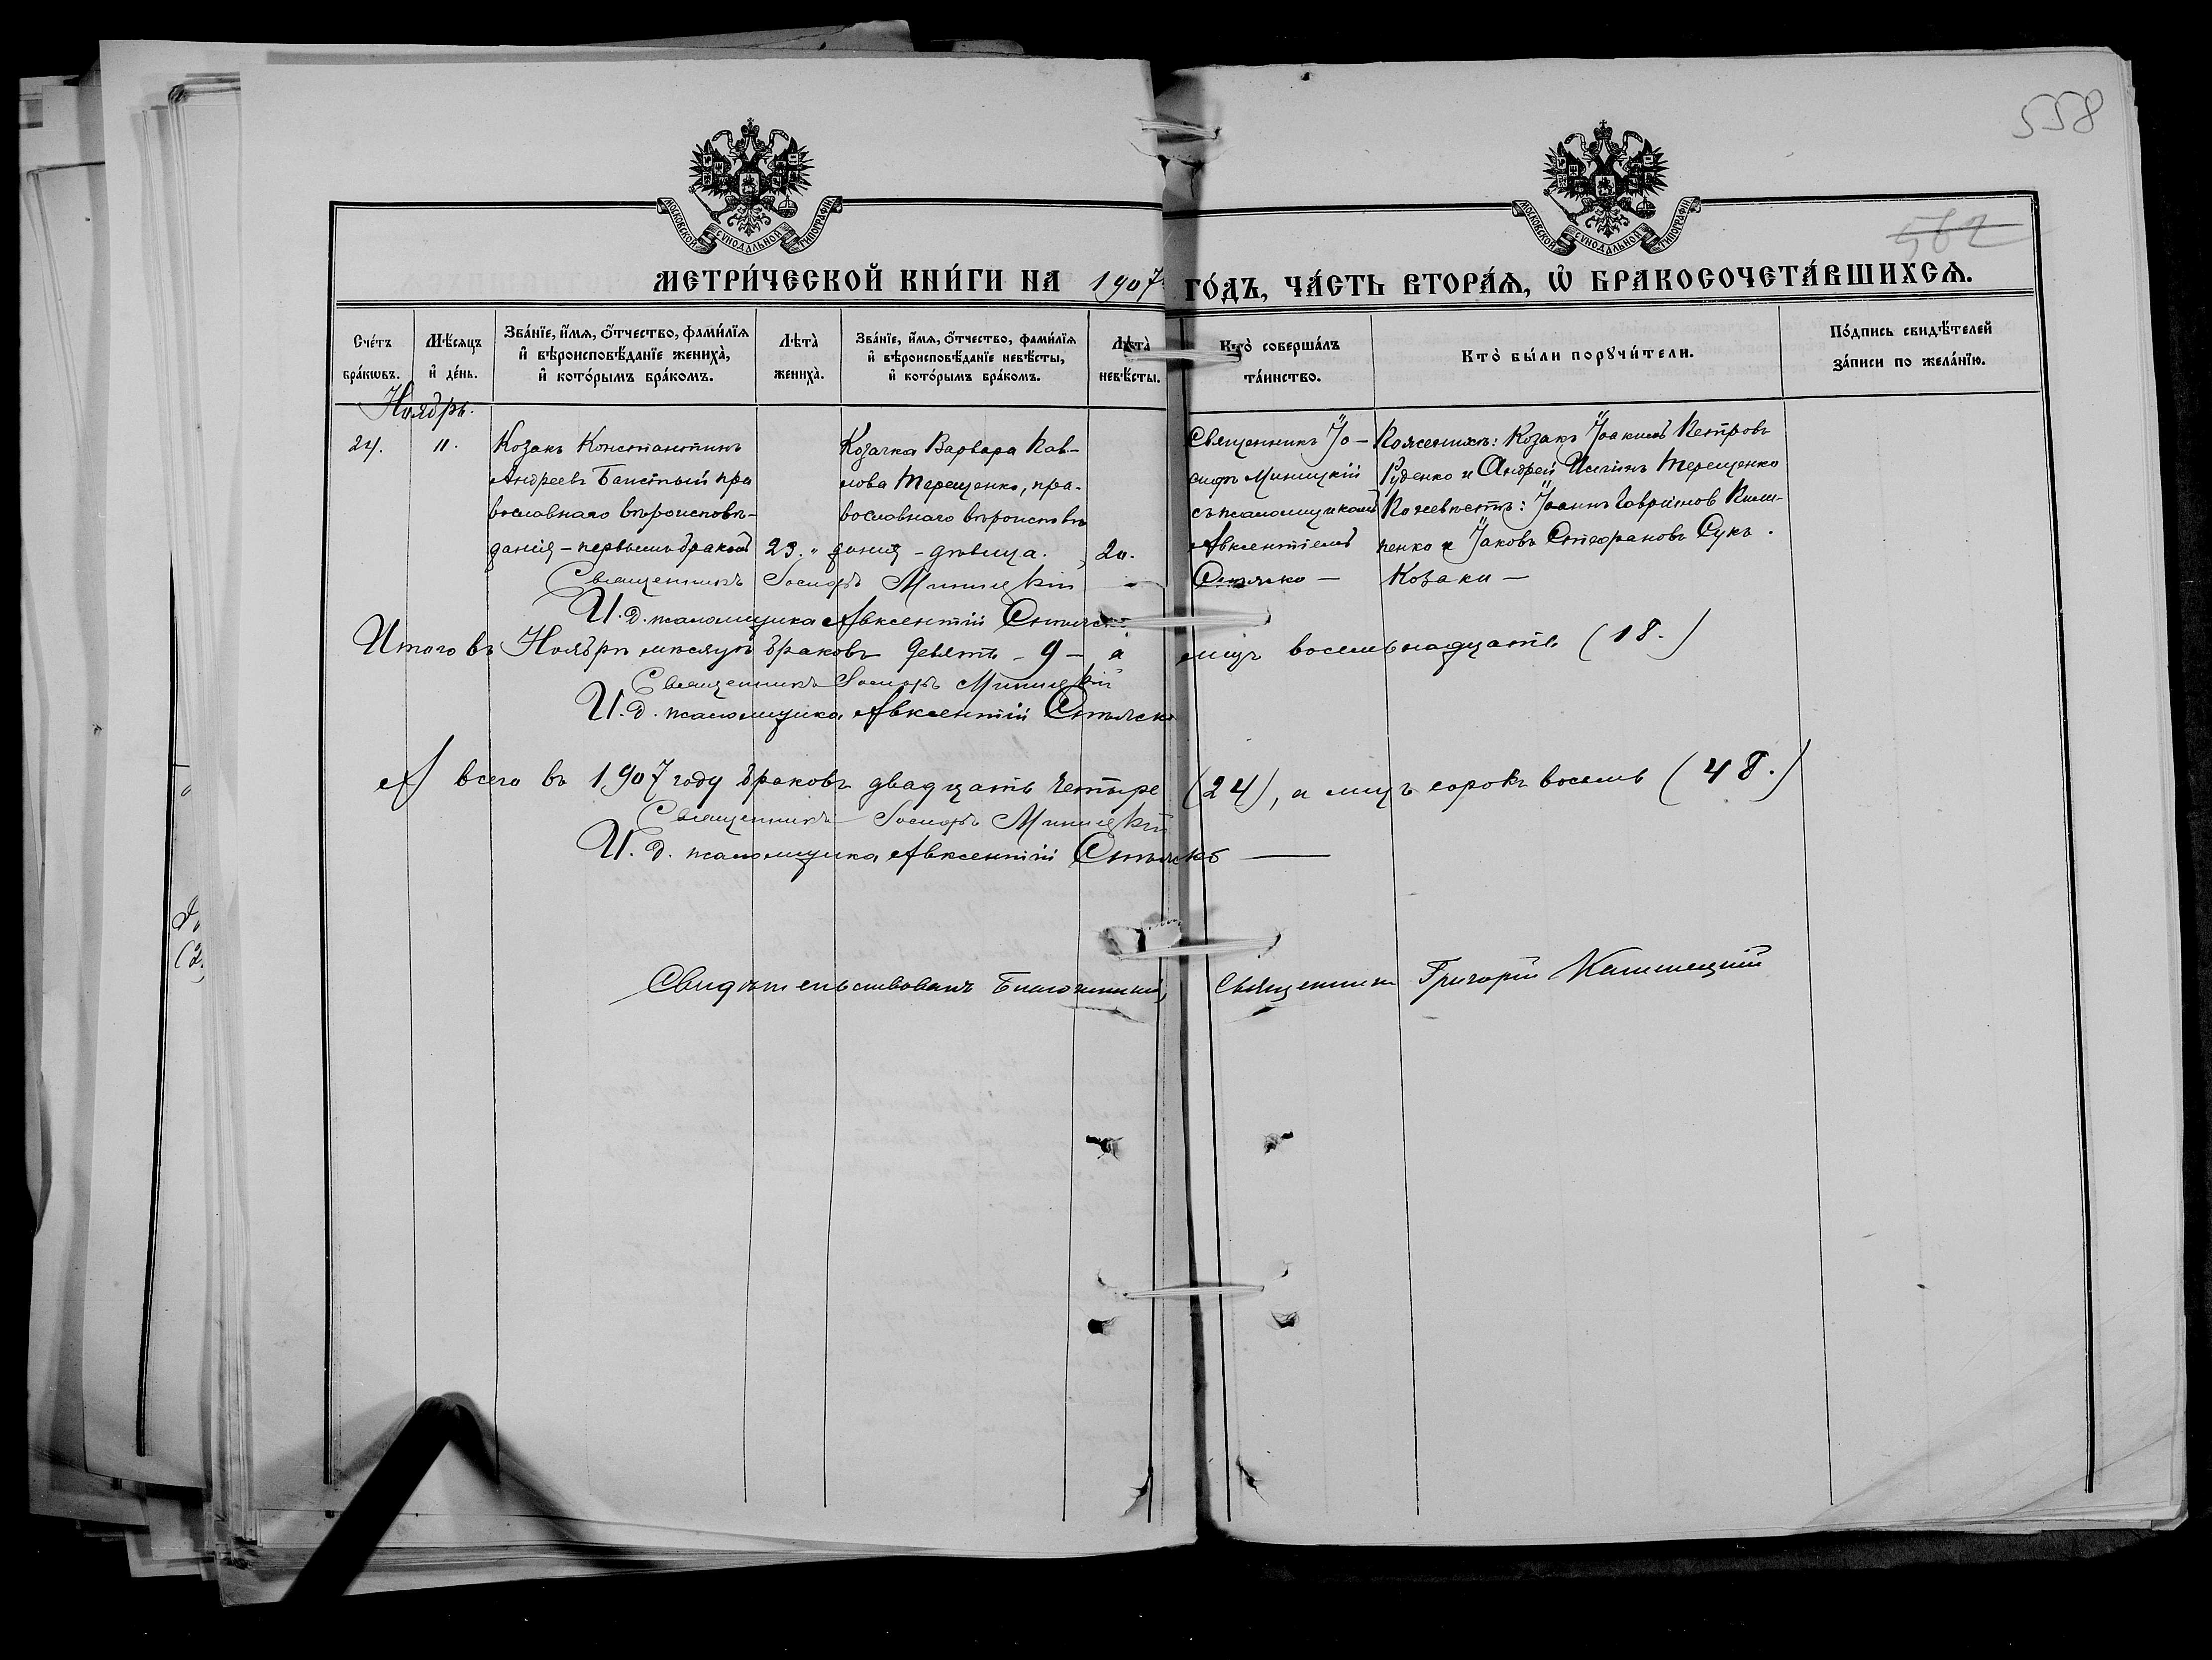 558
562
МОСКОВСКОЙ СѴНОДАЛЬНОЙ ТИПОГРАФІИ
МОСКОВСКОЙ СѴНОДАЛЬНОЙ ТИПОГРАФІИ
МЕТРИ́ЧЕСКОЙ КНИ́ГИ НА 1907 ГО́ДЪ, ЧА́СТЬ ВТОРА́Ѧ, Ѡ҆ БРАКОСОЧЕТА́ВШИХСѦ.
Сче́тъ
бра́кѡвъ.
Мѣ́сѧцъ
и҆ де́нь.
Зва́нїе, и҆́мѧ, ѻ҆́тчество, фами́лїѧ
и҆ вѣроисповѣ́данїе жениха̀,
и҆ кото́рымъ бра́комъ.
Лѣта̀
жениха̀.
Зва́нїе, и҆́мѧ, ѻ҆́тчество, фами́лїѧ
и҆ вѣроисповѣ́данїе невѣ́сты,
и҆ кото́рымъ бра́комъ.
Лѣта̀
невѣ́сты.
Кто̀ соверша́лъ
та́инство.
Кто̀ бы́ли порꙋчи́тели.
По́дпись свидѣ́телей
за́писи по жела́нїю.
Ноябрь.
24.
11.
Козакъ Константинъ
Андреевъ Баистый пра
вославнаго вѣроисповѣ-
данія - первымъ бракомъ
23.
Козачка Варвара Пав-
лова Терещенко, пра-
вославнаго вѣроисповѣ
данія - дѣвица.
20.
Священникъ Іо-
сифъ Миницкій
съ псаломщикомъ
Авксентіемъ
По женихѣ: Козакъ Іоакимъ Петровъ
Руденко и Андрей Терещенко
По невѣстѣ: Іоаннъ Гавріиловъ
пенко и Іаковъ Стефановъ Сукъ.
Козаки —
Священникъ Іосифъ Миницкій
И. д. псаломщика Авксентій
Итого въ Ноябрѣ мѣсяцѣ браковъ девять - 9 - а лицъ восемьнадцать (18.)
Священникъ Іосифъ Миницкій
И. д. псаломщика Авксентій
А всего въ 1907 году браковъ двадцать четыре (24), а лицъ сорокъ восемь (48.)
Священникъ Іосифъ Миницкій
И. д. псаломщика Авксентій
Свидѣтельствовалъ Благочинный, Священникъ Григорій